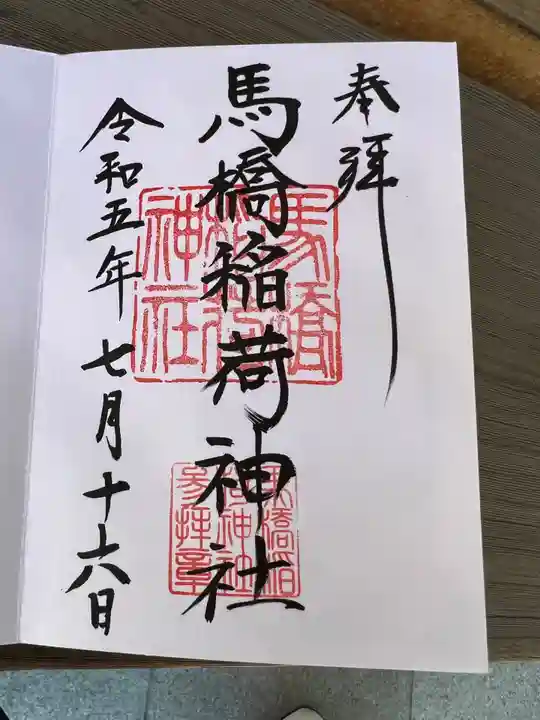 奉拝
馬橋稲荷神社
令和五年七月十六日
馬橋
稲荷
神社
馬橋稲
荷神社
参拝章